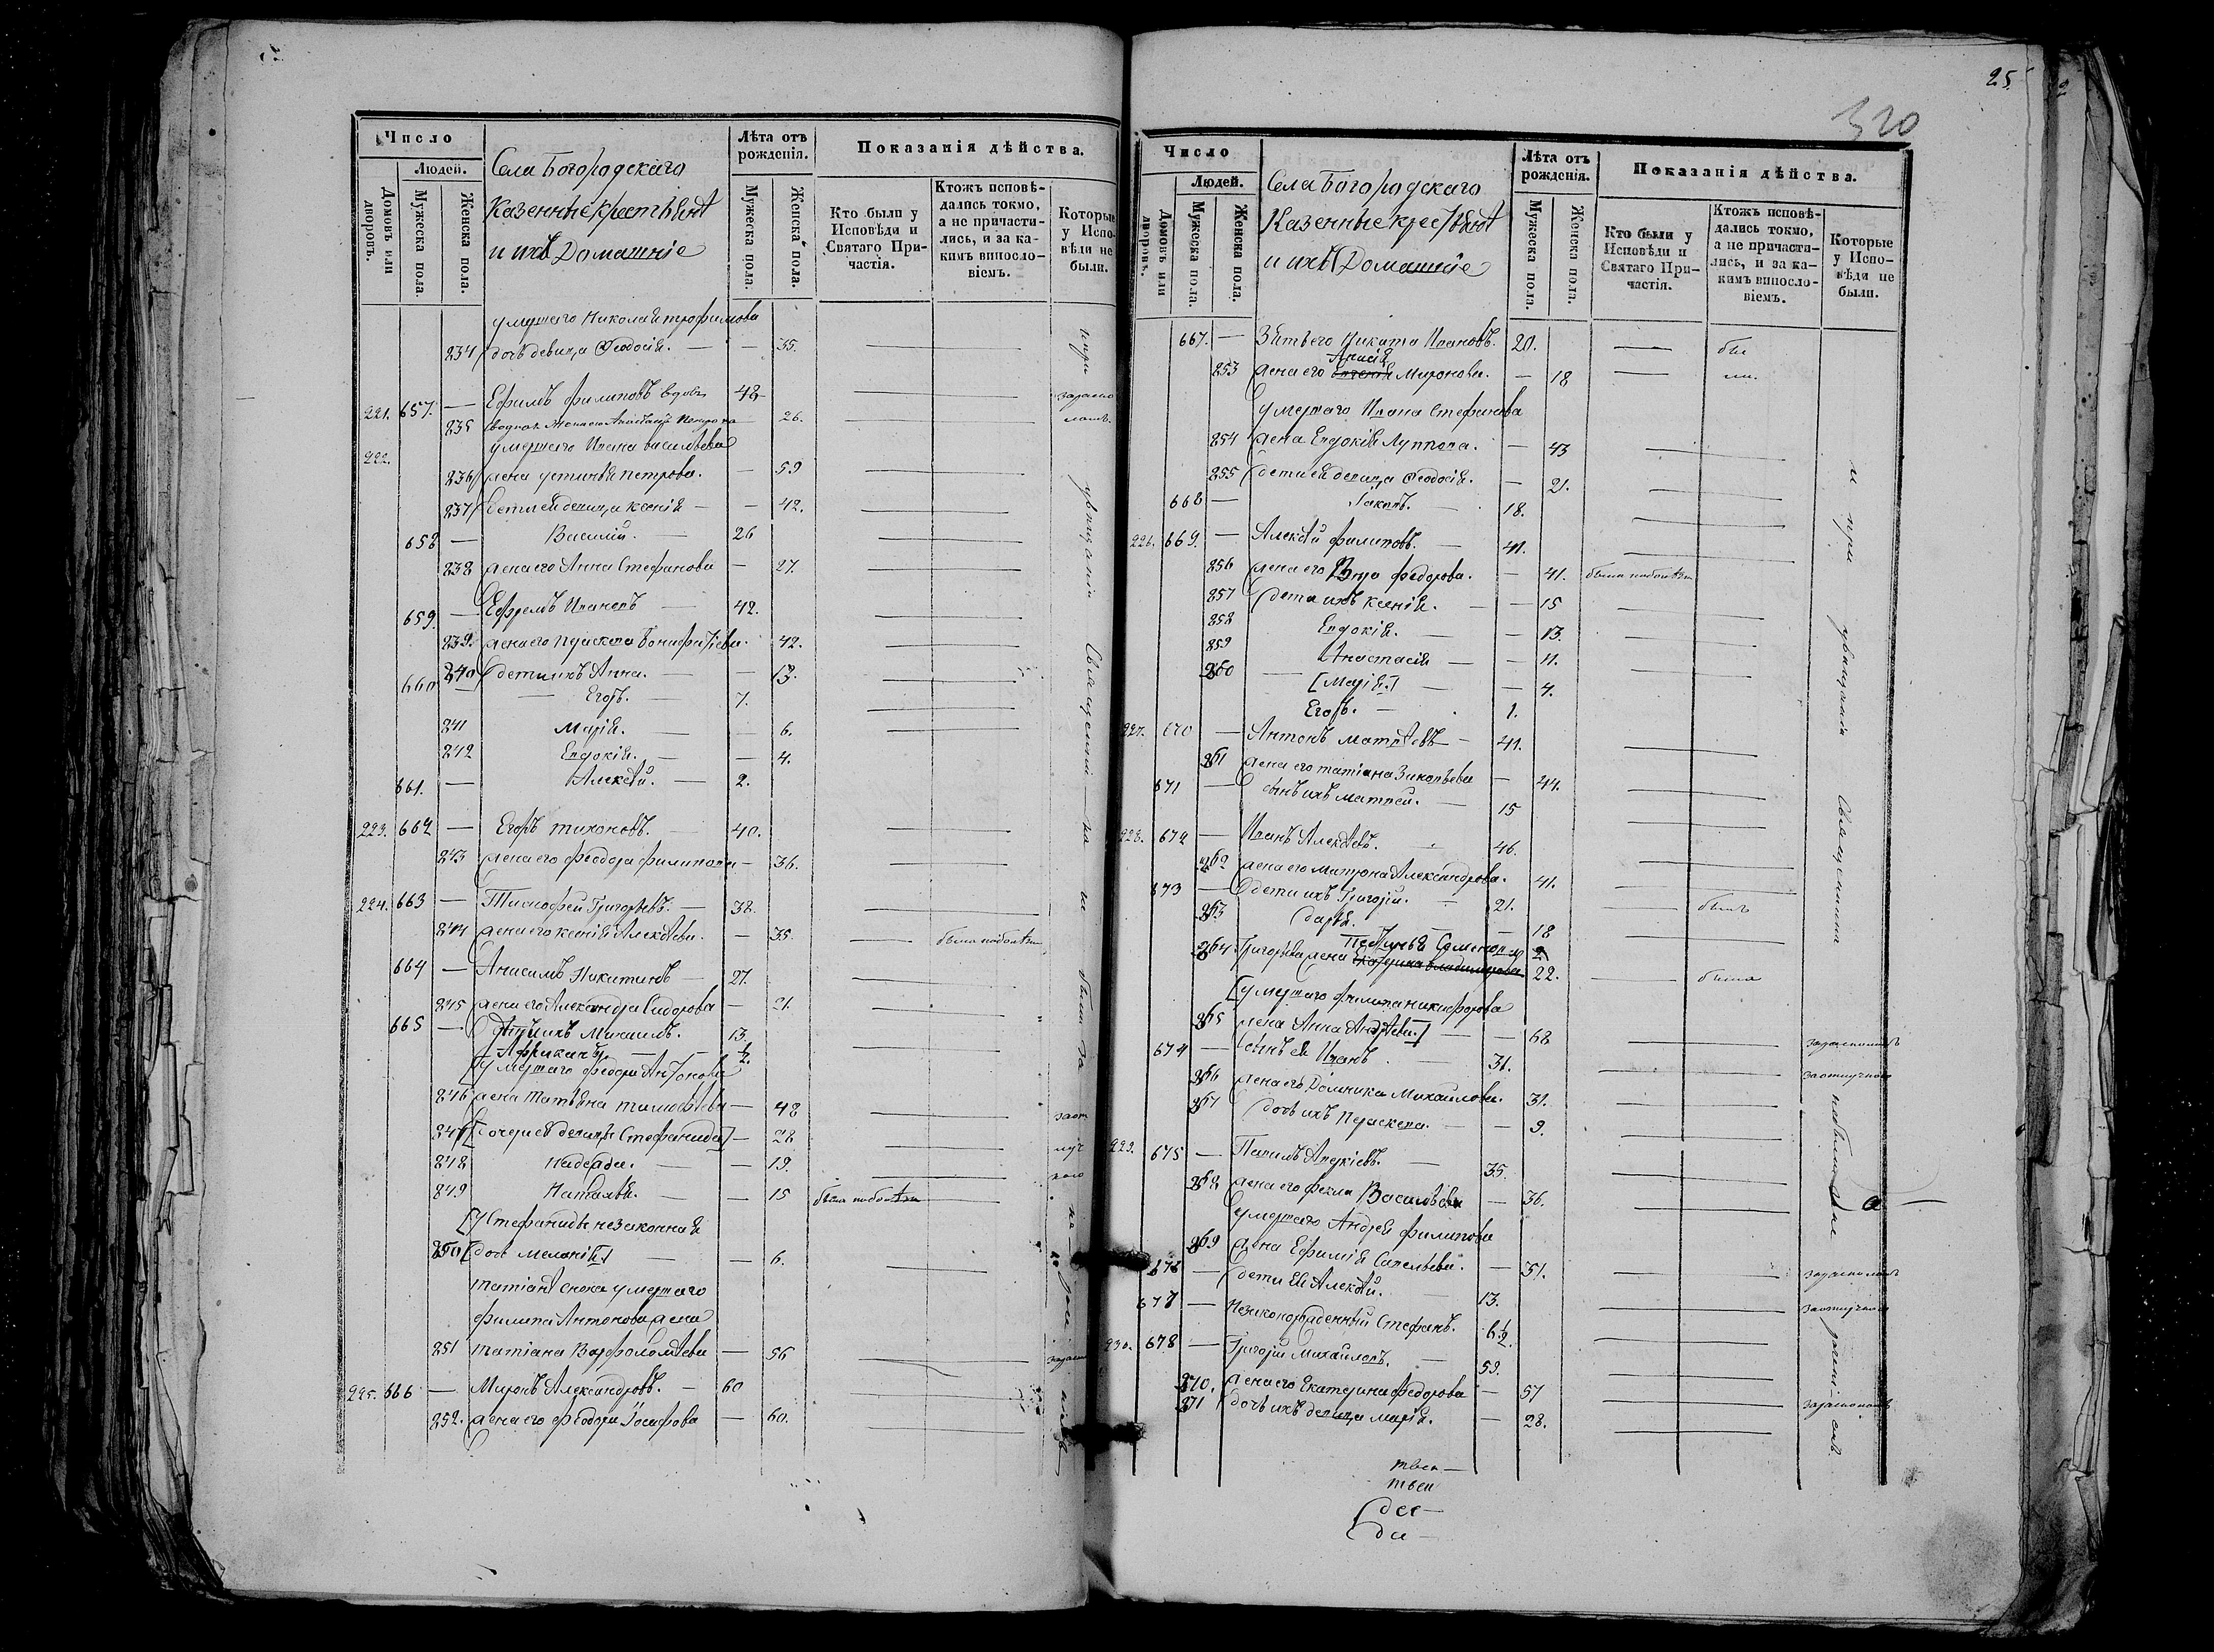 Число
Людей.
Домовъ или дворовъ.
Мужеска пола.
Женска пола.
Села Богородскаго
Казенные крестьяне
и ихъ Домашніе
Лѣта отъ рожденія.
Мужеска пола.
Женска пола.
Показанія дѣйства.
Кто были у Исповѣди и Святаго При-частія.
Ктожъ исповѣ-дались токмо, а не причасти-лись, и за ка-кимъ винносло-віемъ.
Которые у Испо-вѣди не были.
умершаго Николая трофимова
234 дочь девица Ѳеодосія. — — 35.
221. 657. — Ефимъ филиповъ вдовъ 48
235 Петрова 26.
222. умершаго Ивана васильева
236 жена устинья петрова. — 59
237 дети ея девица ксенія — — 42.
658 — Василий. — 26
238 жена его Анна Стефанова — 27.
659. — Ефремъ Ивановъ — 42.
239. жена его Праскева Бонифатіева. 42.
240 дети ихъ Анна. — — 13.
660 — Егоръ. — 7.
241 Марія. — — 6.
242 Евдокія. — — 4.
661. — Алексѣй. — 2.
223. 662 — Егоръ тихоновъ. — 40.
243 жена его феодора филипова — 36.
224. 663 — Тимофей Григорьевъ. — 38.
244 жена его ксенія Алексѣева. — 35. — была по болѣзн
664 — Анисимъ Никитинъ — 27.
245 жена его Александра Сидорова — 21.
665 — сынъ ихъ Михаилъ. — 13.
Африканъ — 1/2
[умершаго феодора Антонова
246 жена Татьяна тимофѣева — 48
247 [дочери ея девицы Стефанида] — 28
248 Надежда. — — 19.
249 Наталья. — — 15 была по болѣзн
[У Стефаниды незаконная
250 [дочь Меланія] — — 6.
татіаны сноха умершаго
филипа Антонова жена
251 татіана Варфоломѣева — 56
225. 666 — Миронъ Александровъ. — 60
252. жена его феодора Іосифова — 60.
25
320
Число
Людей.
Домовъ или дворовъ.
Мужеска пола.
Женска пола.
Села Богородскаго
Казенные крестьяне
и ихъ Домашніе
Лѣта отъ рожденія.
Мужеска пола.
Женска пола.
Показанія дѣйства.
Кто были у Исповѣди и Святаго При-частія.
Ктожъ исповѣ-дались токмо, а не причасти-лись, и за ка-кимъ винносло-віемъ.
Которые у Испо-вѣди не были.
667. — Зять его Никита Ивановъ. 20. — бы
253 жена его Анисія Миронова. — 18 — ли.
умершаго Ивана Стефанова
254 жена Евдокія Луппова. — 43
255 дети ея девица Ѳеодосія. — 21.
668 — Іаковъ. — 18.
226. 669. — Алексѣй филиповъ. — 41.
256 жена его Вера федорова. — 41. была по болѣзн
257 дети ихъ ксенія. — — 15
258 Евдокія. — — 13.
259 Анастасія — — 11.
260 — [Марія.] — — 4.
Егоръ. — 1.
227. 670 — Антонъ матвѣевъ — 41.
261 жена его татіана — 44.
671 — сынъ ихъ матвей. — 15
228. 672 — Иванъ Алексѣевъ. 46.
262 жена его матрона Александрова. 41.
673 — дети ихъ Григорій. — 21. — былъ
263 Дарья. — 18
264 Григорья жена Семенова 22. — была
[умершаго филипа никифорова
265 жена Анна Андрѣева.] — — 68
674 — сынъ ея Иванъ. — 31.
266 жена его Домника Михаилова. 31.
267 дочь ихъ Праскева. — — 9.
229. 675 — Павилъ Авдкіевъ. — 35.
268 жена его фекла Васильева — 36.
умершаго Андрея филипова
269 жена Ефимія Савельева. — 51.
676 — дети Ея Алексѣй. — 13.
677 — Незаконорожденный Стефанъ. 6 1/2.
230. 678 — Григорій Михаиловъ. — 59.
270. жена его Екатерина федорова — 57
271 дочь ихъ девица марія. — 28.
твен —
твен
де —